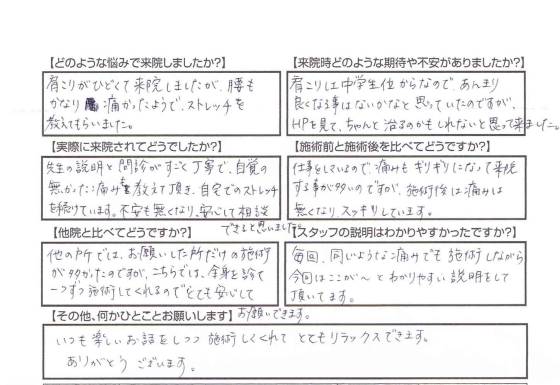 【どのような悩みで来院しましたか?】
肩こりがひどくて来院しましたが、腰も
かなり痛かったようで、ストレッチを
教えてもらいました。
【来院時どのような期待や不安がありましたか?】
肩こりは中学生位からなので、あんまり
良くなる事はないかなと思っていたのですが、
HPを見て、ちゃんと治るのかもしれないと思って来ました。
【実際に来院されてどうでしたか?】
先生の説明と問診がすごく丁寧で、自覚の
無かった痛みを教えて頂き、自宅でのストレッチ
を続けています。不安も無くなり、安心して相談
できると思いました。
【施術前と施術後を比べてどうですか?】
仕事をしているので、痛みもギリギリになって来院
する事が多いのですが、施術後は痛みは
無くなり、スッキリしています。
【他院と比べてどうですか?】
他の所では、お願いした所だけの施術
が多かったのですが、こちらでは、全身を診て
一つずつ施術してくれるのでとても安心して
お願いできます。
【スタッフの説明はわかりやすかったですか?】
毎回、同じような痛みでも施術しながら
今回はここが〜とわかりやすい説明をして
頂いてます。
【その他、何かひとことお願いします】
いつも楽しいお話をしつつ施術してくれてとてもリラックスできます。
ありがとうございます。